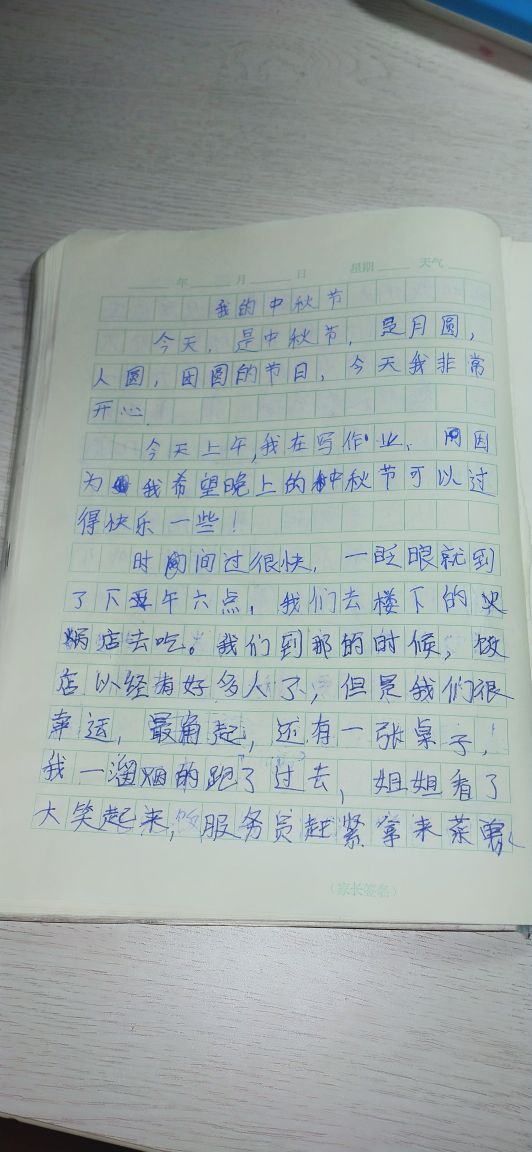 年 月 日 星期 天气
我的中秋节
今天，是中秋节，是月圆，
人圆，团圆的节日，今天我非常
开心
今天上午，我在写作业，因
为我希望晚上的中秋节可以过
得快乐一些！
时间过很快，一眨眼就到
了下午六点，我们去楼下的火
锅店去吃。我们到那的时候，饭
店以经有好多人了，但是我们很
幸运，最角起，还有一张桌子，
我一溜烟的跑了过去，姐姐看了
大笑起来，服务员赶紧拿来菜
（家长签名）